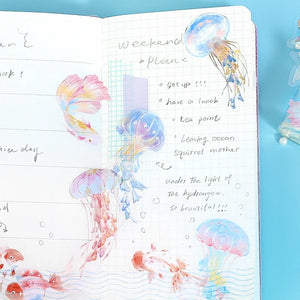 ok!
nice day
nd
Weekend
Plan
get up!!!
have a lunch
tea point
Leaving ocean
squirrel mother
under the light of
the hydrangea
so beautiful!!!